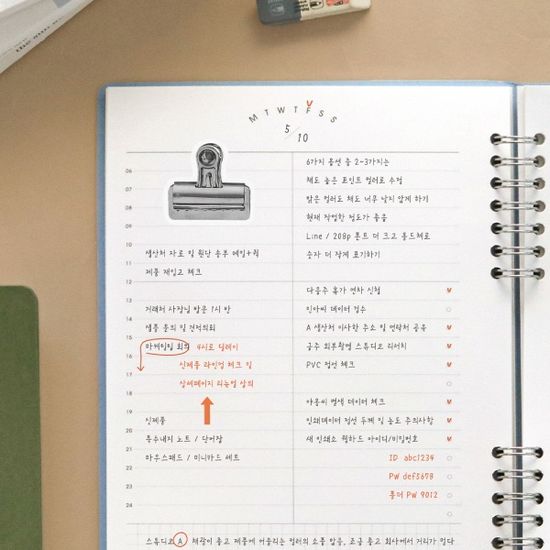 M T W T F S S
5/10
06
07
08
09
10
11
12
13
14
15
16
17
18
19
20
21
22
23
24
생산처 자료 및 원단 송부 메일+퀵
제품 재입고 체크
거래처 사장님 방문 1시 반
샘플 문의 및 견적의뢰
마케팅팀 회의 4시로 딜레이
신제품 라인업 체크 및
상세페이지 리뉴얼 상의
신제품
특수내지 노트 / 단어장
마우스패드 / 미니카드 세트
6가지 옵션 중 2-3가지는
채도 높은 포인트 컬러로 수정
밝은 컬러도 채도 너무 낮지 않게 하기
현재 작업한 정도가 좋음
Line / 208p 폰트 더 크고 볼드체로
숫자 더 작게 표기하기
다음주 휴가 연차 신청
민아씨 데이터 접수
A 생산처 이사한 주소 및 연락처 공유
금주 외부촬영 스튜디오 리서치
PVC 점선 체크
별색 데이터 체크
인쇄데이터 점선 두께 및 농도 주의사항
새 인쇄소 웹하드 아이디/비밀번호
ID abc1234
PW def5678
폴더 PW 9012
스튜디오 A 채광이 좋고 제품에 어울리는 컬러의 소품 많음, 조금 좁고 회사에서 거리가 멀다